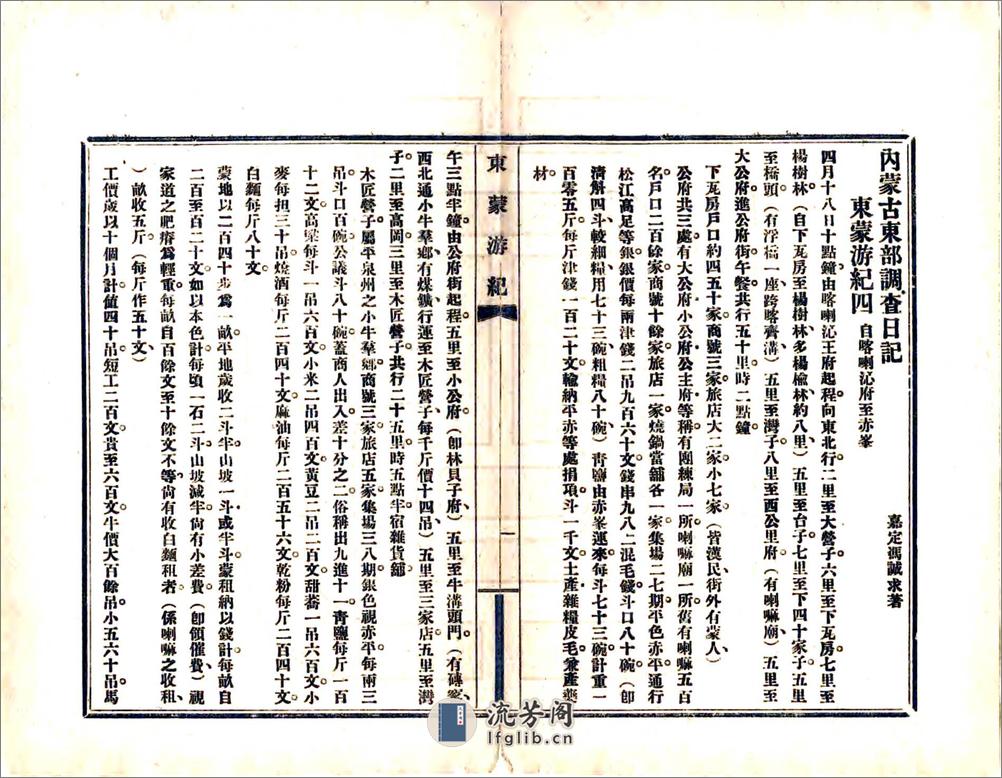 內蒙古東部調查日記
東蒙游紀四 自喀喇沁府至赤峯
嘉定馮誠求著
四月十八日十點鐘由喀喇沁王府起程向東北行二里至大營子六里至下瓦房七里至
楊樹林(自下瓦房至楊樹林多楊榆林約八里)五里至台子七里至下四十家子五里
至橋頭(有浮橋一座跨喀齊溝)五里至灣子八里至西公里府(有喇嘛廟)五里至
大公府進公府街午餐共行五十里時二點鐘
下瓦房戶口約四五十家商號三家旅店大二家小七家(皆漢民街外有蒙人)
公府共三處有大公府小公府公主府等稱有團練局一所喇嘛廟一所舊有喇嘛五百
名戶口二百餘家商號十餘家旅店一家燒鍋當舖各一家集場二七期平色赤平通行
松江高足等銀銀價每兩津錢二吊九百六十文錢串九八二混毛錢斗口八十碗(卽
濟斛四斗較細糧用七十三碗粗糧八十碗)靑鹽由赤峯運來每斗七十三碗計重一
百零五斤每斤津錢一百二十文輸納平赤等處捐項斗一千文土產雜糧皮毛兼產藥
材
東蒙游紀
一
午三點半鐘由公府街起程五里至小公府(卽林貝子府)五里至牛溝頭門(有磚窰
西北通小牛羣鄉有煤鑛行運至木匠營子每千斤價十四吊)五里至三家店五里至灣
子二里至高岡三里至木匠營子共行二十五里時五點半宿雜貨舖
木匠營子屬平泉州之小牛羣鄉商號三家旅店五家集場三八期銀色視赤平每兩三
吊斗口百碗公議斗八十碗蓋商人出入差十分之二俗稱出九進十一靑鹽每斤一百
十二文高粱每斗一吊六百文小米二吊四百文黃豆二吊二百文甜蕎一吊六百文小
麥每担三十吊燒酒每斤二百四十文麻油每斤二百五十六文乾粉每斤二百四十文
白麵每斤八十文
蒙地以二百四十步爲一畝平地歲收二斗半山坡一斗或半斗蒙租納以錢計每畝自
二百至百二十文如以本色計每頃一石二斗山坡減半尙有小差費(卽領催費)視
家道之肥瘠爲輕重每畝自百餘文至十餘文不等尙有收白麵租者(係喇嘛之收租
)畝收五斤(每斤作五十文)
工價歲以十個月計値四十吊短工二百文貴至六百文牛價大百餘吊小五六十吊馬
流芳阁
lfglib.cn